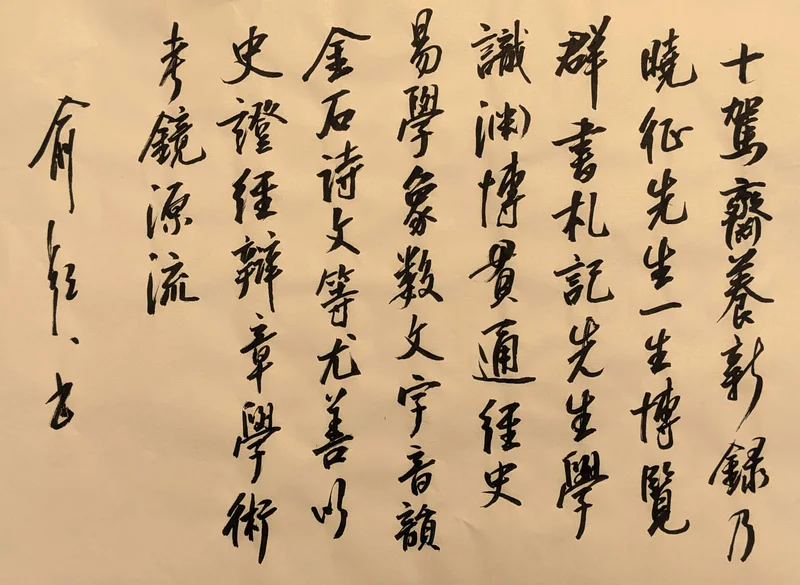 十駕齋養新録乃
曉征先生一生博覽
群書札記先生學
識淵博貫通經史
易學象数文字音韻
金石诗文等尤善以
史證經辯章學術
考鏡源流
俞 书